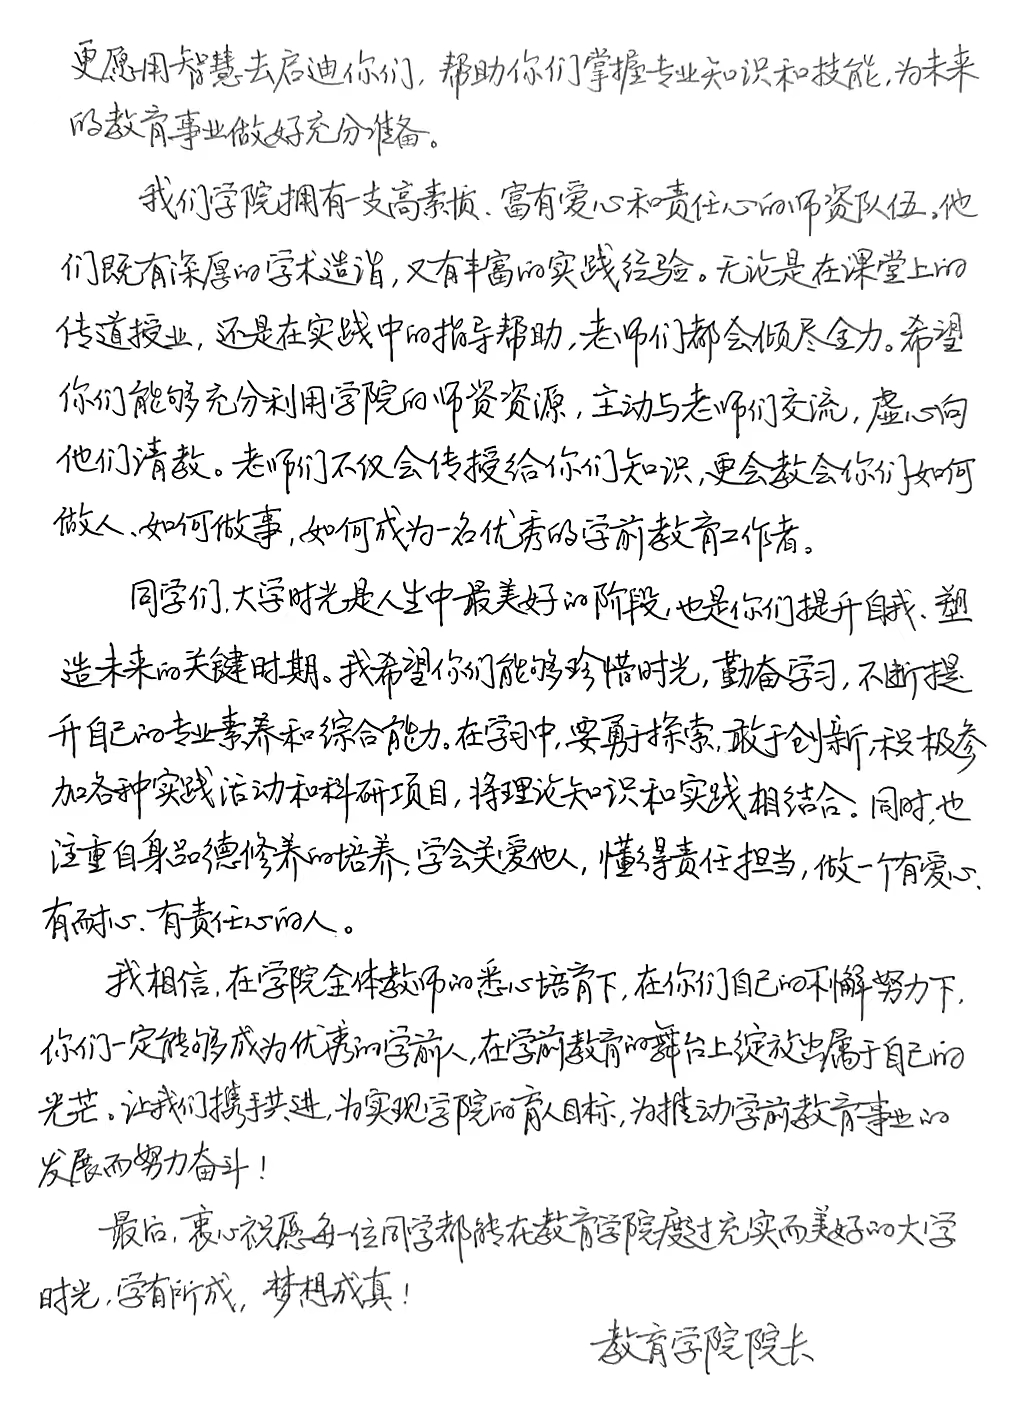 更愿用智慧去启迪你们，帮助你们掌握专业知识和技能，为未来
的教育事业做好充分准备。
我们学院拥有一支高素质、富有爱心和责任心的师资队伍。他
们既有深厚的学术造诣，又有丰富的实践经验。无论是在课堂上的
传道授业，还是在实践中的指导帮助，老师们都会倾尽全力。希望
你们能够充分利用学院的师资资源，主动与老师们交流，虚心向
他们请教。老师们不仅会传授给你们知识，更会教会你们如何
做人、如何做事，如何成为一名优秀的学前教育工作者。
同学们，大学时光是人生中最美好的阶段，也是你们提升自我、塑
造未来的关键时期。我希望你们能够珍惜时光，勤奋学习，不断提
升自己的专业素养和综合能力。在学习中，要勇于探索，敢于创新，积极参
加各种实践活动和科研项目，将理论知识和实践相结合。同时，也
注重自身品德修养的培养，学会关爱他人，懂得责任担当，做一个有爱心、
有耐心、有责任心的人。
我相信，在学院全体教师的悉心培育下，在你们自己的不懈努力下，
你们一定能够成为优秀的学前人，在学前教育的舞台上绽放出属于自己的
光芒。让我们携手共进，为实现学院的育人目标，为推动学前教育事业的
发展而努力奋斗！
最后，衷心祝愿每一位同学都能在教育学院度过充实而美好的大学
时光，学有所成，梦想成真！
教育学院院长